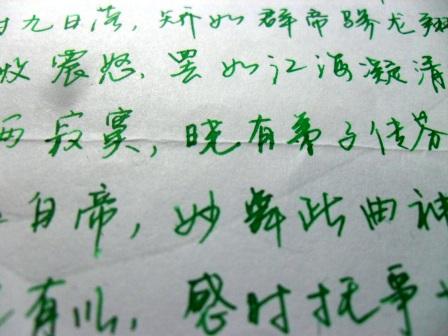 射九日落，矫如群帝骖龙翔
收震怒，罢如江海凝清
两寂寞，晓有弟子传芬
白帝，妙舞此曲神
有以，感时抚事